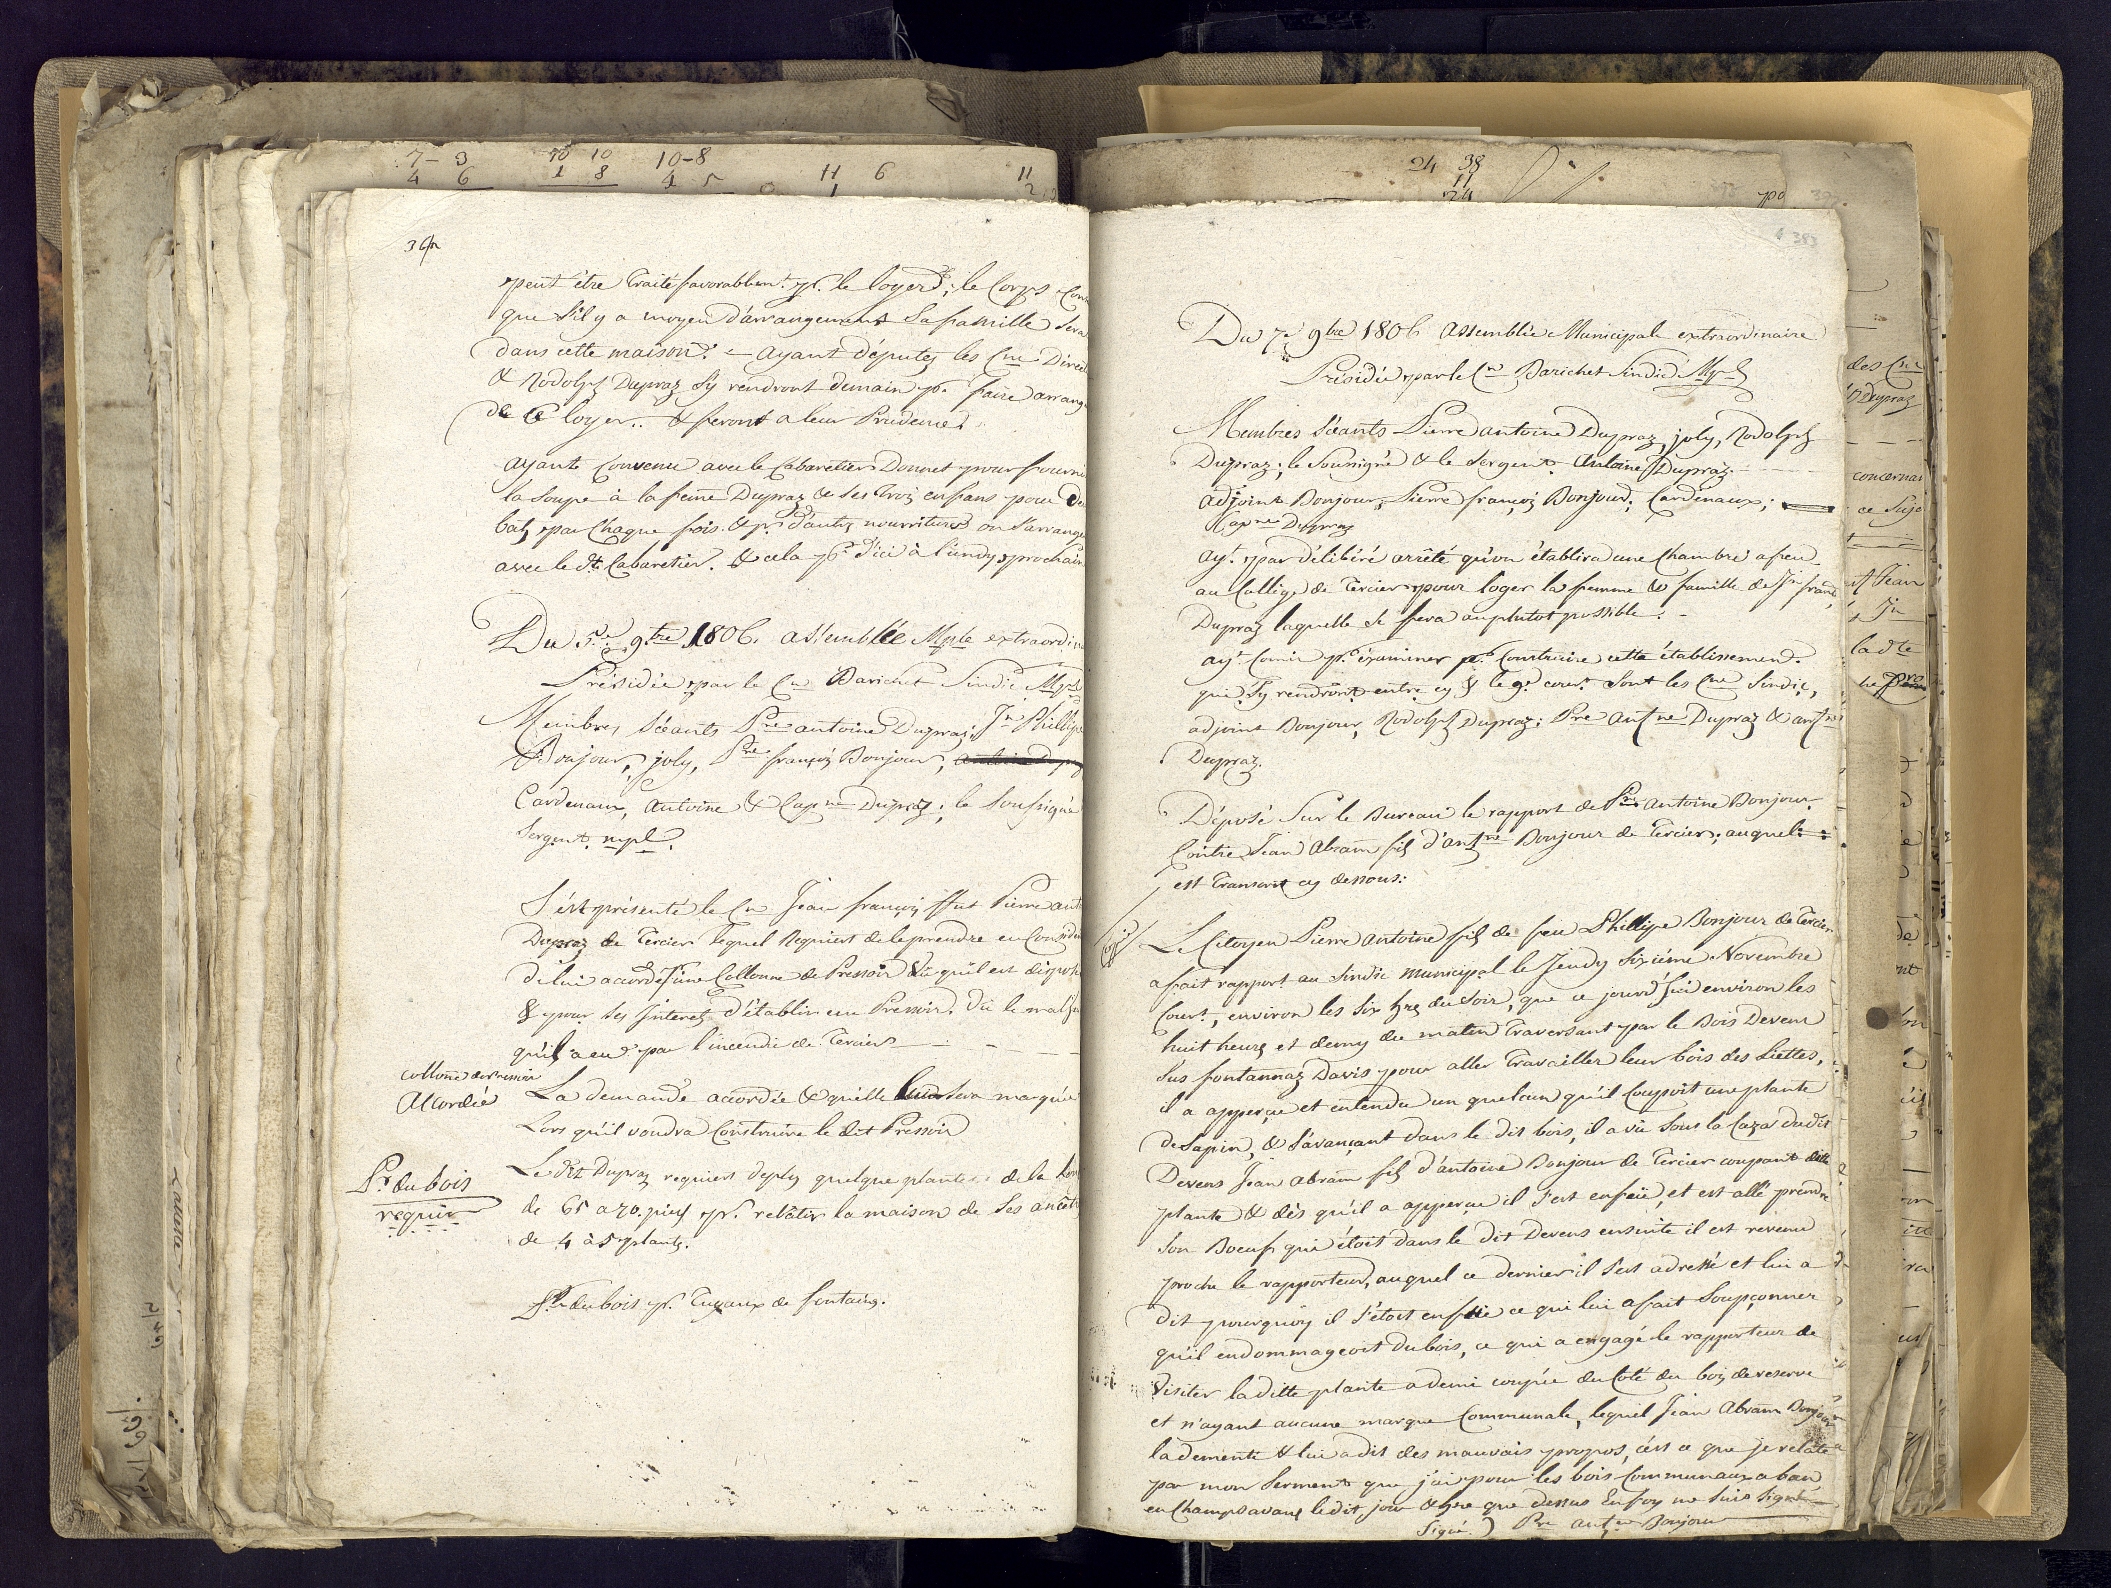 7- 3 10 10 10-8 11 6 11
4 6 1 8 4 5 0 1 2
peut être Traité favorablemt. pr. le loyer; le Corps
que s'il y a moyen d'arrangement Sa famille Sera
dans cette maison. ayant députez les Cns
& Rodolph Dupraz S'y rendront demain pr. faire arrang
de Ce loyer.. & feront a leur Prudence.
ayants Convenu avec le Cabaretier Donnet pour fourni
la Soupe à la femme Dupraz & Ses Trois enfans pour
batz par Chaque fois. & pr. d'autres nourritures on S'arrange
avec le dt. Cabaretier. & cela pr. d'ici à Lundy prochain
Du 5e. 9bre 1806. assemblée Mple extraordin
Présidée par le Cn Barichet Sindic Mpl
Membres Séants Pre antoine Dupraz; Jn Phillipe
Bonjour, joly, Pre françois Bonjour,
Cardinaux, Antoine & Capne Dupraz; le Soussigné
Sergent mpl.
S'est présenté le Cn Jean françois ffut Pierre ant
Dupraz de Cercier lequel Requiert de le prendre en Consider
de lui accorder une Collonne de Pressoir Vû qu'il est disposé
& pour Ses Interets d'établir un Pressoir. Vû le malh
qu'il a eu par l'incendie de Cercier
Collonne de Pressoir
Accordée
La demande accordée & qu'elle lui Sera marquée
Lors qu'il voudra Construire le dit Pressoir
Pr du bois
requis
Le dit Dupraz requiert de plus quelque plantes de la
de 65 a 70. pieds pr. rebâtir la maison de Ses ancêt
de 4 à 5 plantes.
Pr du bois pr. Tuyaux de fontaine.
24 38
11
24
383
Du 7e 9bre 1806 assemblée Municipale extraordinaire
Présidée par le Cn Barichet Sindic Mpl
Membres Séants Pierre antoine Dupraz, joly, Rodolph
Dupraz; le Soussigné & le Sergent Antoine Dupraz.
adjoint Bonjour; Pierre françois Bonjour; Cardinaux;
Capne Dupraz
ayt. par délibéré arrêté qu'on établira une Chambre a feu
au Collège de Cercier pour loger la femme & famille de Jn franç
Dupraz laquelle Se fera au plutot possible.
ayt. Comis pr. examiner pr. Construire cette établissement.
qui S'y rendront entre cy & le 9e court. Sont les Cns Sindic,
adjoint Bonjour, Rodolph Dupraz; Pre Antne Dupraz & antne
Dupraz.
Déposé Sur le Bureau le rapport de Pre antoine Bonjour.
Contre Jean Abram fils d'antne Bonjour de Cercier; auquel
est Transcrit cy dessous:
Copie
Le Citoyen Pierre antoine fils de feu Phillipe Bonjour de Cercier
a fait rapport au Sindic municipal le Jeudy Sixième Novembre
Court, environ les Six hres du Soir, que ce jourd'hui environ les
huit heures et demy du matin Traversant par le Bois Devens
Sus fontannaz Davis pour aller Travailler leur bois des Liettes,
il a apperçu et entendu un quelcun qu'il Coupoit une plante
de Sapin, & S'avançant dans le dit bois, il a vû Sous la Caza dudit
Devens Jean Abram fils d'antoine Bonjour de Cercier coupant ditte
plante & dès qu'il a apperçu il s'est enfuie, et est allé prendre
Son Boeuf qui étoit dans le dit Devens ensuite il est revenu
proche le rapporteur, auquel ce dernier il S'est adressé et lui a
dit pourquoy il S'étoit enfuie ce qui lui a fait Soupçonner
qu'il endommageoit du bois, ce qui a engagé le rapporteur de
Visiter laditte plante a demi coupée du Coté du bois de reserve
et n'ayant aucune marque Communale, lequel Jean Abram Bonjour
la dementi & lui a dit des mauvais propos, c'est ce que je relate
par mon Serment que j'ai pour les bois Communaux a ban
en Champs avaux le dit jour & hre que dessus En foy me Suis Signé
Signé) Pre antne Bonjour
des Cns
Dupraz
concernan
ce Suje
Jean
Jn
ladte